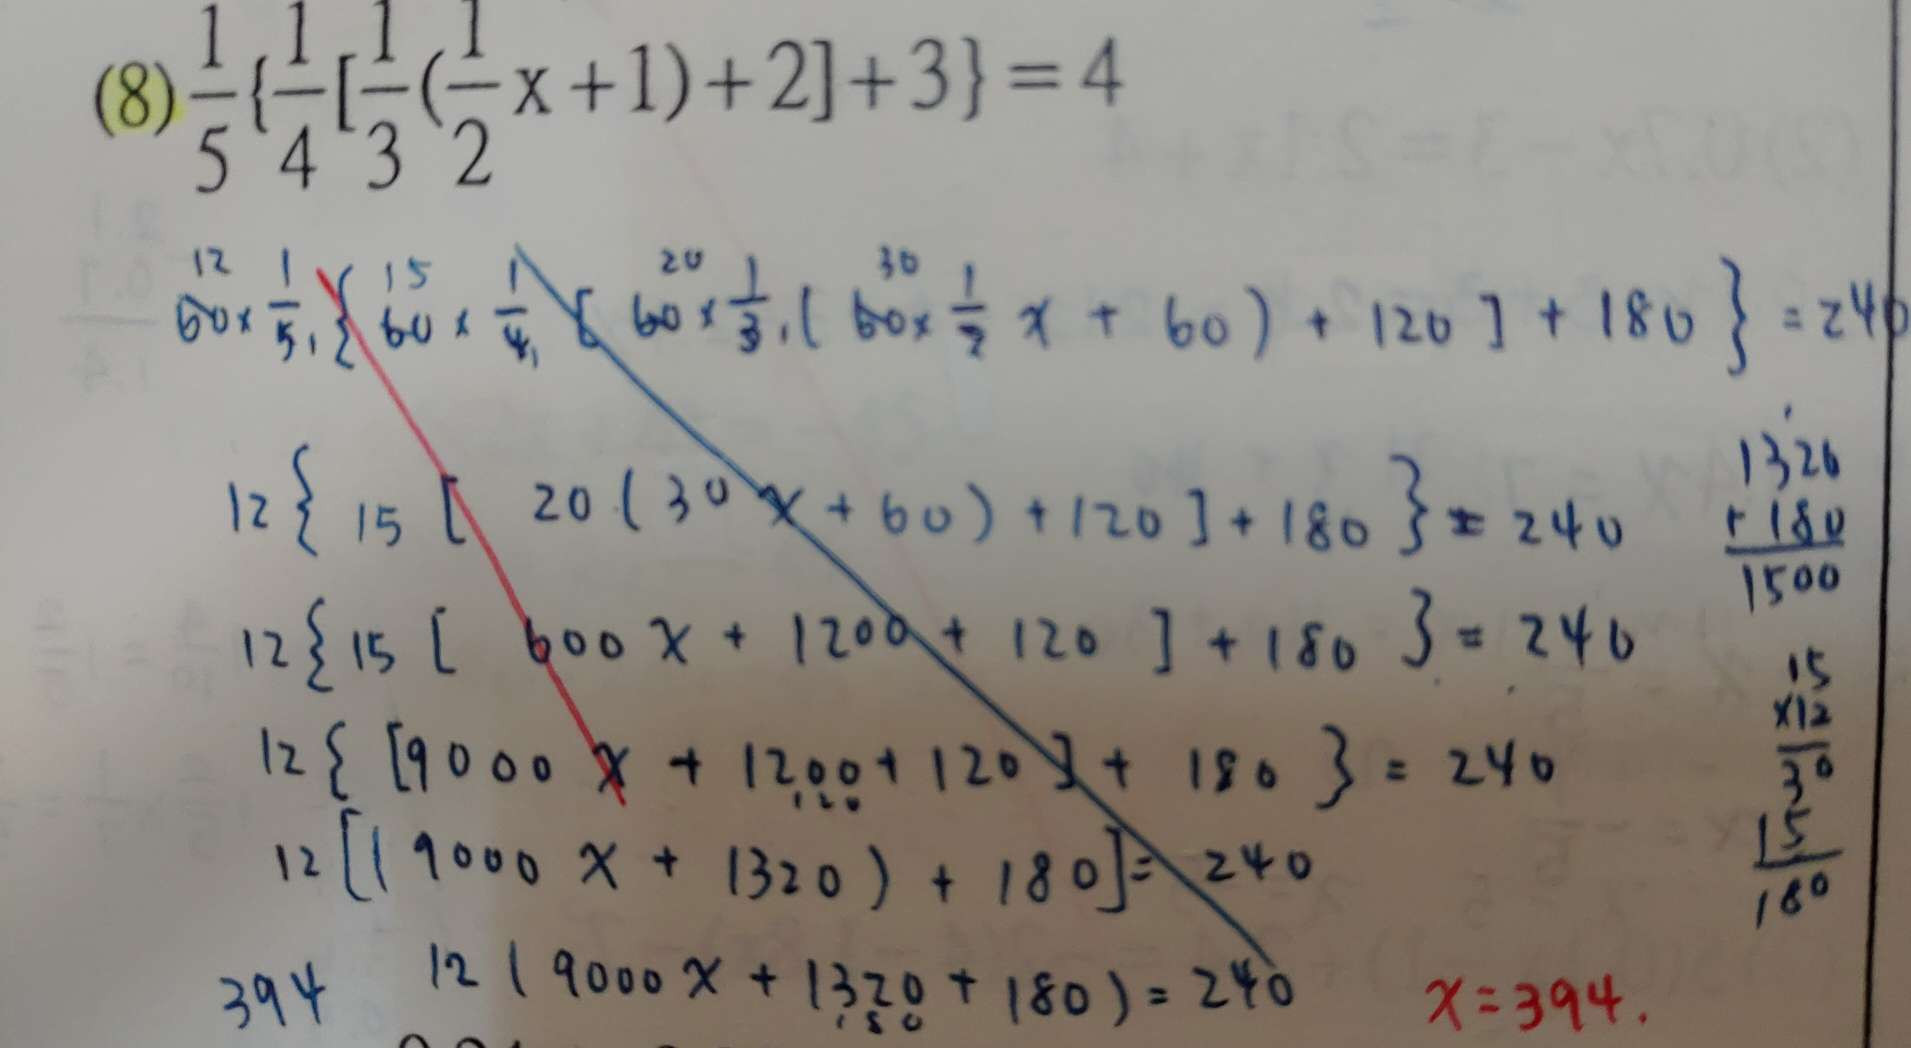 (8) 1/5 {1/4 [1/3 (1/2 x + 1) + 2] + 3} = 4
12 15 20 30
60 x 1/5, { 60 x 1/4, [ 60 x 1/3, ( 60 x 1/2 x + 60 ) + 120 ] + 180 } = 240
12 { 15 [ 20 ( 30 x + 60 ) + 120 ] + 180 } = 240
12 { 15 [ 600 x + 1200 + 120 ] + 180 } = 240
12 { [ 9000 x + 1200 + 120 ] + 180 } = 240
120
12 [ ( 9000 x + 1320 ) + 180 ] = 240
12 ( 9000 x + 1320 + 180 ) = 240
180
394
x = 394.
1320
+ 180
1500
15
x12
30
15
180